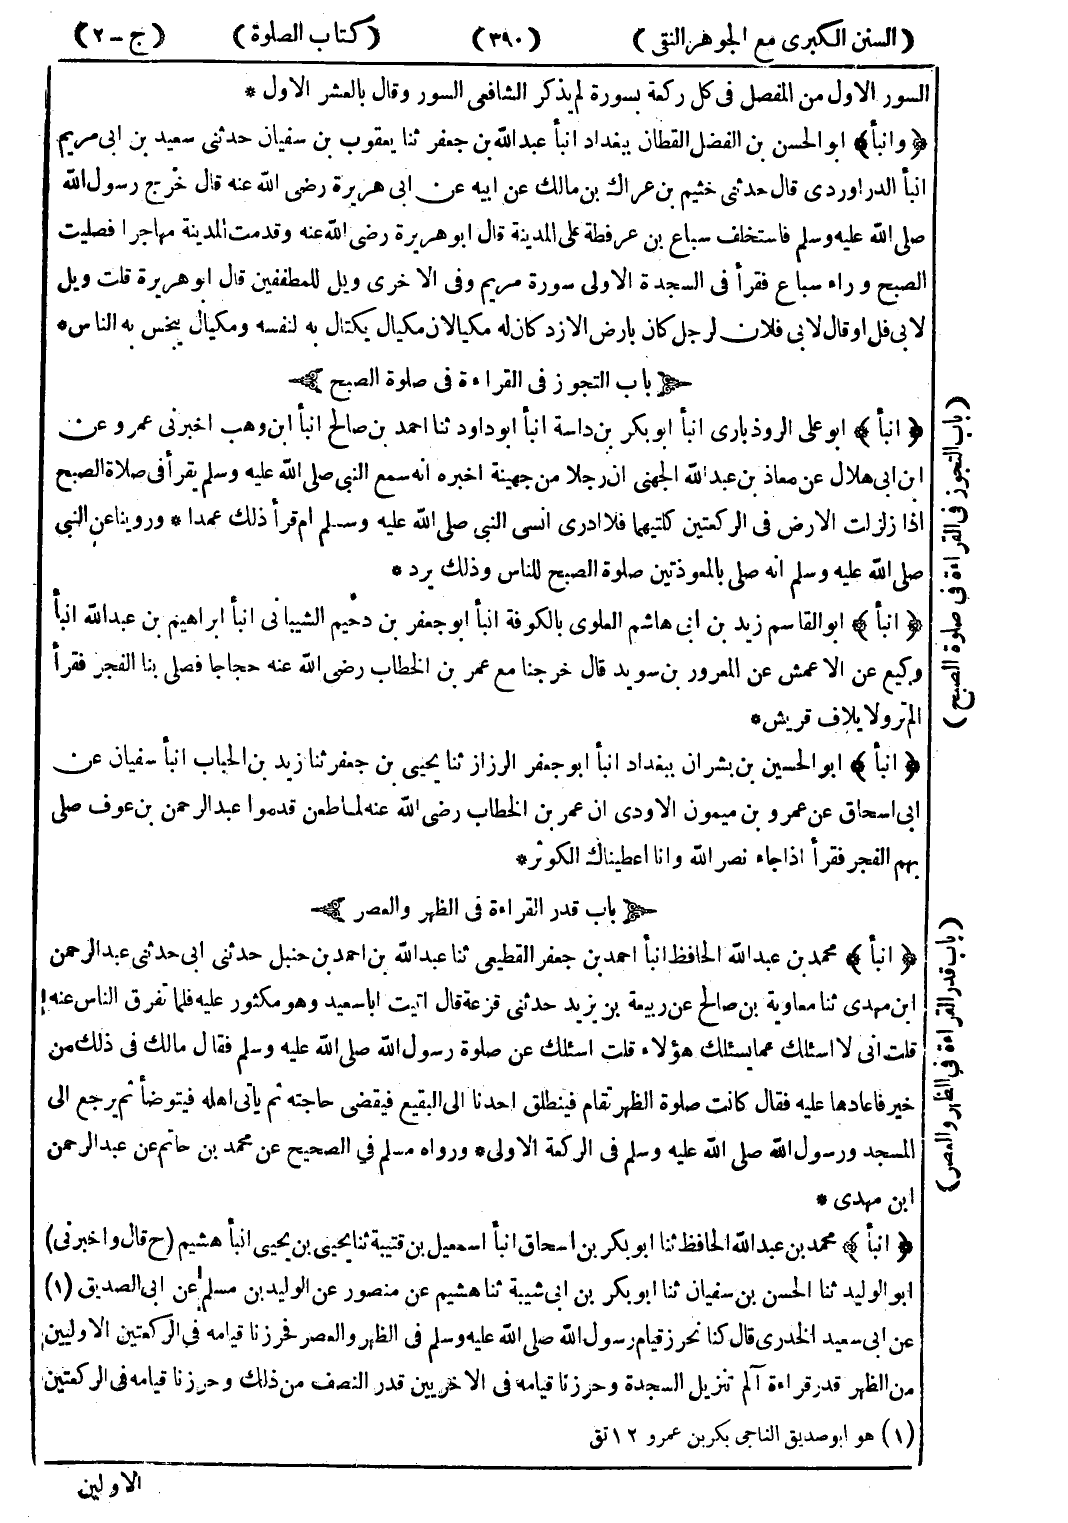 (السنن الكبرى مع الجوهر النقى) (٣٩٠) (كتاب الصلوة) (ج - ٢)
السور الاول من المفصل فى كل ركعة بسورة لم يذكر الشافعى السور وقال بالعشر الاول *
﴿وانبأ﴾ ابو الحسن بن الفضل القطان ببغداد انبأ عبدالله بن جعفر ثنا يعقوب بن سفيان حدثنى سعيد بن ابى مريم
انبأ الدراوردى قال حدثنى خثيم بن عراك بن مالك عن ابيه عن ابى هريرة رضى الله عنه قال خرج رسول الله
صلى الله عليه وسلم فاستخلف سباع بن عرفطة على المدينة قال ابو هريرة رضى الله عنه وقدمت المدينة مهاجرا فصليت
الصبح وراء سباع فقرأ فى السجدة الاولى سورة مريم وفى الاخرى ويل للمطففين قال ابو هريرة قلت ويل
لابى فل او قال لابى فلان لرجل كان بارض الازد كان له مكيالان مكيال يكتال به لنفسه ومكيال يبخس به الناس*
باب التجوز فى القراءة فى صلوة الصبح
﴿انبأ﴾ ابو على الروذبارى انبأ ابو بكر بن داسة انبأ ابو داود ثنا احمد بن صالح انبأ ابن وهب اخبرنى عمرو عن
ابن ابى هلال عن معاذ بن عبدالله الجهنى ان رجلا من جهينة اخبره انه سمع النبى صلى الله عليه وسلم يقرأ فى صلاة الصبح
اذا زلزلت الارض فى الركعتين كلتيهما فلا ادرى انسى النبى صلى الله عليه وسلم ام قرأ ذلك عمدا * وروينا عن النبى
صلى الله عليه وسلم انه صلى بالمعوذتين صلوة الصبح للناس وذلك يرد *
﴿انبأ﴾ ابو القاسم زيد بن ابى هاشم العلوى بالكوفة انبأ ابو جعفر بن دحيم الشيبانى انبأ ابراهيم بن عبدالله انبأ
وكيع عن الاعمش عن المعرور بن سويد قال خرجنا مع عمر بن الخطاب رضى الله عنه حجاجا فصلى بنا الفجر فقرأ
الم تر ولايلاف قريش*
﴿انبأ﴾ ابو الحسين بن بشران ببغداد انبأ ابو جعفر الرزاز ثنا يحيى بن جعفر ثنا زيد بن الحباب انبأ سفيان عن
ابى اسحاق عن عمرو بن ميمون الاودى ان عمر بن الخطاب رضى الله عنه لما طعن قدموا عبدالرحمن بن عوف صلى
بهم الفجر فقرأ اذا جاء نصر الله وانا اعطيناك الكوثر*
باب قدر القراءة فى الظهر والعصر
﴿انبأ﴾ محمد بن عبدالله الحافظ انبأ احمد بن جعفر القطيعى ثنا عبدالله بن احمد بن حنبل حدثنى ابى حدثنى عبدالرحمن
ابن مهدى ثنا معاوية بن صالح عن ربيعة بن يزيد حدثنى قزعة قال اتيت اباسعيد وهو مكثور عليه فلما تفرق الناس عنه
قلت انى لا اسئلك عما يسئلك هؤلاء قلت اسئلك عن صلوة رسول الله صلى الله عليه وسلم فقال مالك فى ذلك من
خير فاعادها عليه فقال كانت صلوة الظهر تقام فينطلق احدنا الى البقيع فيقضى حاجته ثم يأتى اهله فيتوضأ ثم يرجع الى
المسجد ورسول الله صلى الله عليه وسلم فى الركعة الاولى* ورواه مسلم في الصحيح عن محمد بن حاتم عن عبدالرحمن
ابن مهدى *
﴿انبأ﴾ محمد بن عبدالله الحافظ ثنا ابو بكر بن اسحاق انبأ اسمعيل بن قتيبة ثنا يحيى بن يحيى انبأ هشيم (ح قال واخبرنى)
ابو الوليد ثنا الحسن بن سفيان ثنا ابو بكر بن ابى شيبة ثنا هشيم عن منصور عن الوليد بن مسلم عن ابى الصديق (١)
عن ابى سعيد الخدرى قال كنا نحرز قيام رسول الله صلى الله عليه وسلم فى الظهر والعصر فحرزنا قيامه في الركعتين الاوليين
من الظهر قدر قراءة آلم تنزيل السجدة وحرزنا قيامه فى الاخريين قدر النصف من ذلك وحرزنا قيامه فى الركعتين
(١) هو ابو صديق الناجى بكر بن عمرو ١٢ تق
الاولين
(باب التجوز فى القراءة فى صلوة الصبح)
(باب قدر القراءة في الظهر والعصر)